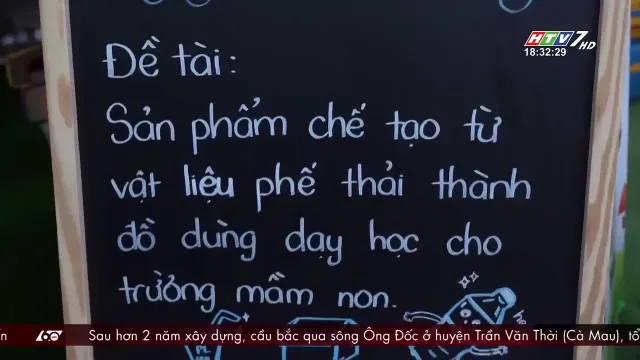 HTV7 HD
18:32:29
Đề tài:
Sản phẩm chế tạo từ
vật liệu phế thải thành
đồ dùng dạy học cho
trường mầm non.
Sau hơn 2 năm xây dựng, cầu bắc qua sông Ông Đốc ở huyện Trần Văn Thời (Cà Mau), tổ